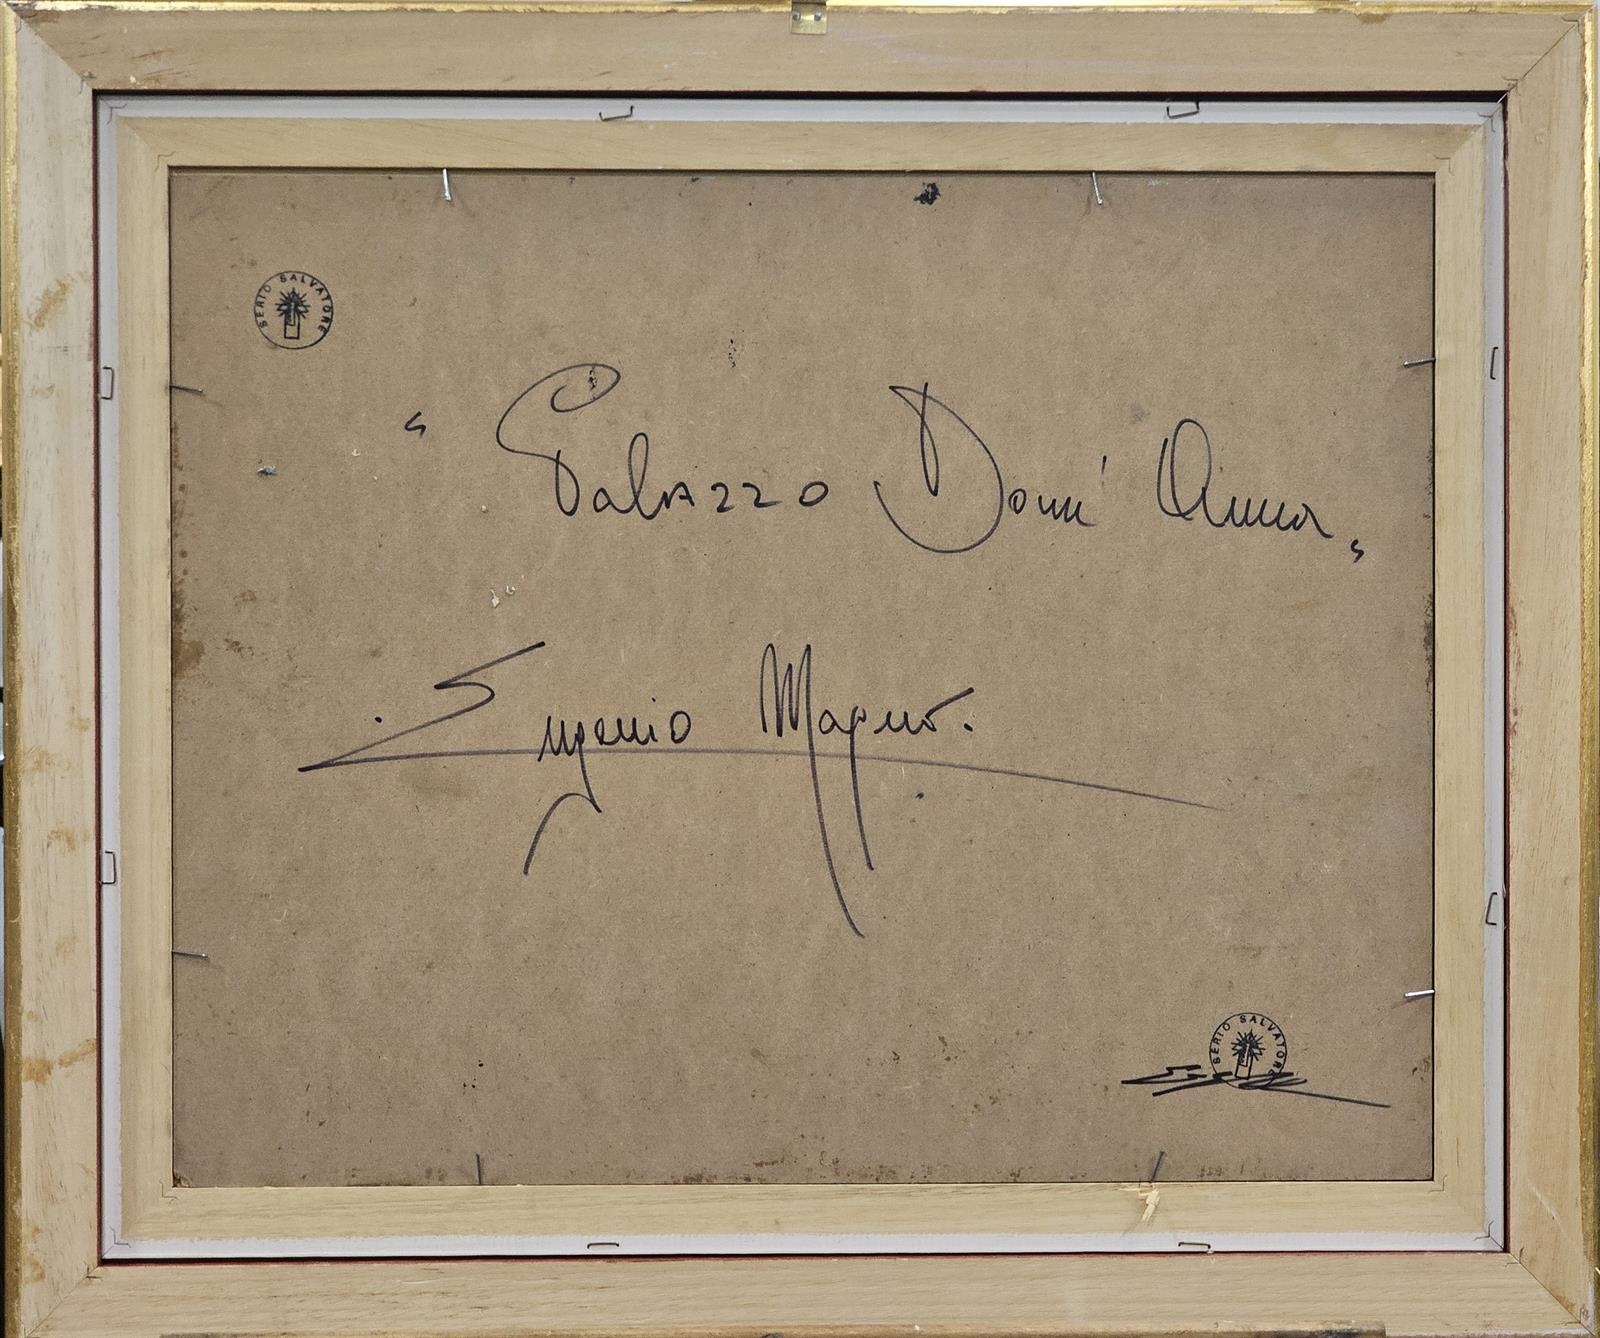 SERIO SALVATORE
" Palazzo Donn' Anna "
Eugenio Magno.
SERIO SALVATORE